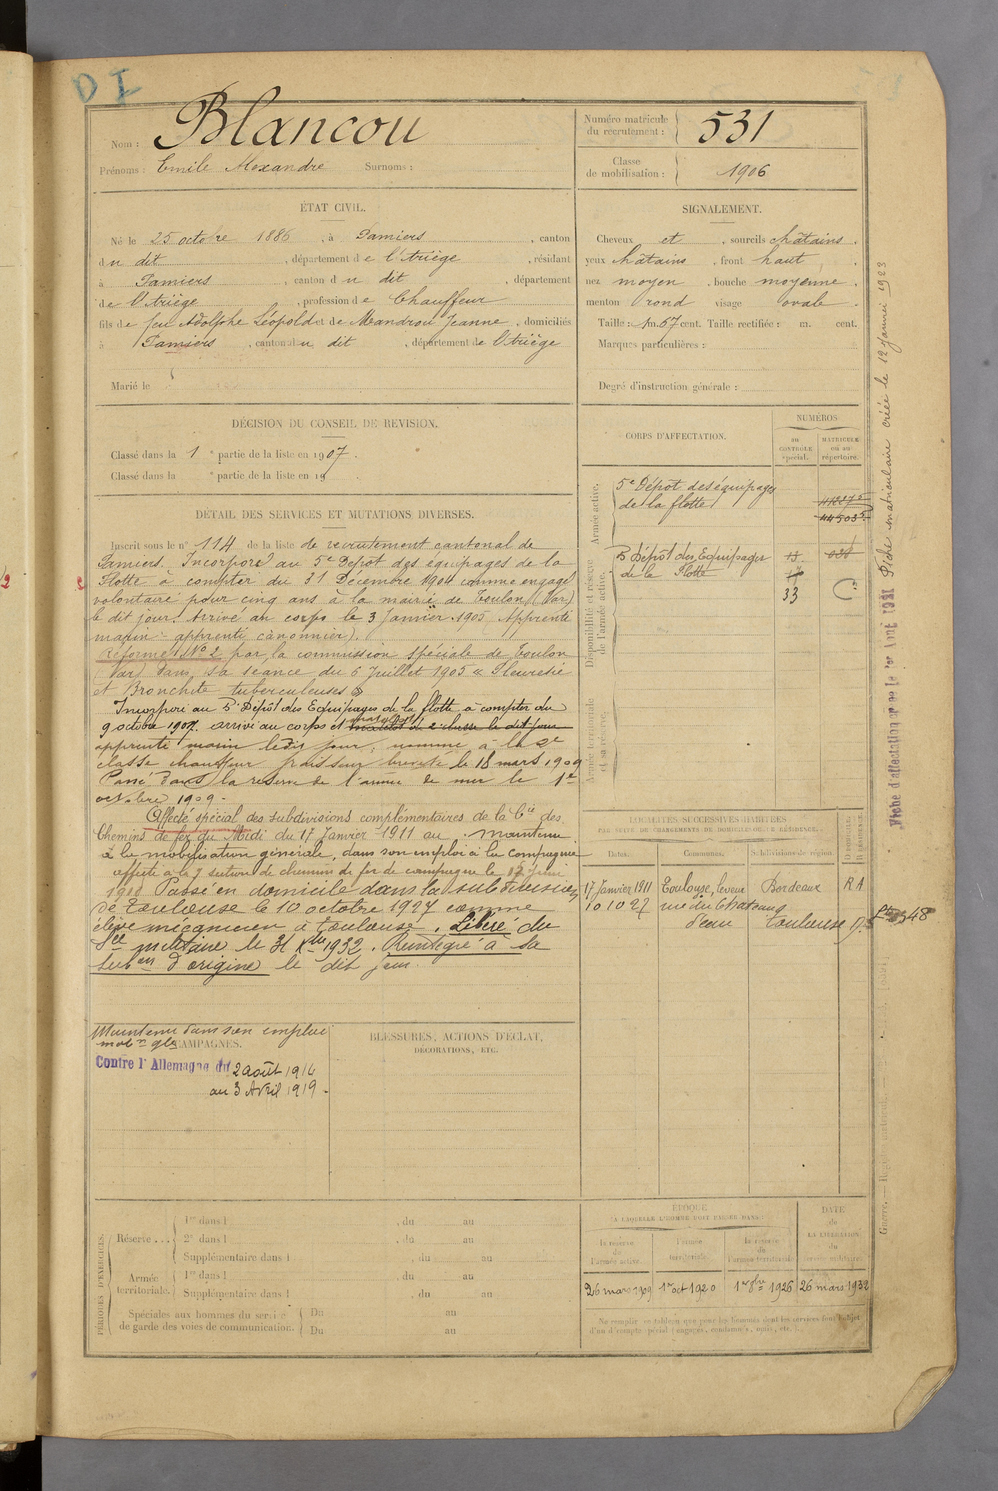 Nom : Blancou
Prénoms : Emile Alexandre Surnoms :
Numéro matricule du recrutement : 531
Classe de mobilisation : 1906
ÉTAT CIVIL.
Né le 25 octobre 1886, à Pamiers, canton
du dit, département de l'Ariège, résidant
à Pamiers, canton du dit, département
de l'Ariège, profession de Chauffeur
fils de feu Adolphe Léopold et de Mandrou Jeanne, domiciliés
à Pamiers, canton du dit, département de l'Ariège
Marié le
SIGNALEMENT.
Cheveux et, sourcils châtains.
yeux châtains, front haut,
nez moyen, bouche moyenne,
menton rond visage ovale.
Taille : 1m.67 cent. Taille rectifiée : m. cent.
Marques particulières :
Degré d'instruction générale :
DÉCISION DU CONSEIL DE REVISION.
Classé dans la 1e partie de la liste en 1907.
Classé dans la e partie de la liste en 19
CORPS D'AFFECTATION.
NUMÉROS
au contrôle spécial.
matricule ou au répertoire.
Armée active.
5e Dépôt des équipages
de la flotte
Disponibilité et réserve de l'armée active.
5 Dépôt des Equipages
de la Flotte
13
17
33
Armée territoriale et sa réserve.
DÉTAIL DES SERVICES ET MUTATIONS DIVERSES.
Inscrit sous le n° 114 de la liste de recrutement cantonal de
Pamiers. Incorporé au 5e Dépôt des équipages de la
Flotte à compter du 31 Décembre 1904 comme engagé
volontaire pour cinq ans à la mairie de Toulon (Var)
le dit jour. Arrivé au corps le 3 Janvier 1905 Apprenti
marin apprenti canonnier).
Réformé N° 2 par la commission spéciale de Toulon
(Var) dans sa séance du 6 Juillet 1905 « Pleurésie
et Bronchite tuberculeuses »
Incorporé au 5e Dépôt des Equipages de la flotte à compter du
9 octobre 1907. arrivé au corps et matelot de 2e classe le dit jour
apprenti marin le dit jour, nommé à la 2e
classe chauffeur breveté le 18 mars 1909
Passé dans la réserve de l'armée de mer le 1er
octobre 1909.
Affecté spécial des subdivisions complémentaires de la Cie des
Chemins de fer du Midi du 17 Janvier 1911 au . Maintenu
à la mobilisation générale, dans son emploi à la Compagnie
affecté à la 7 section de chemins de fer de campagne le
Passé en domicile dans la subdivision
de Toulouse le 10 octobre 1927 comme
élève mécanicien à Toulouse. Libéré du
Sce militaire le 31 Xbre 1932. Réintégré à sa
subon d'origine le dit jour.
LOCALITÉS SUCCESSIVES HABITÉES
PAR SUITE DE CHANGEMENTS DE DOMICILE OU DE RÉSIDENCE.
Dates. Communes. Subdivisions de région. D domicile. R résidence.
17 Janvier 1911 Toulouse, Bordeaux R A
10 10 27 rue du Chateau
d'eau Toulouse D
Maintenu dans son emploi
mobon gle
CAMPAGNES.
Contre l'Allemagne du 2 août 1914
au 3 Avril 1919.
BLESSURES, ACTIONS D'ÉCLAT,
DÉCORATIONS, ETC.
PÉRIODES D'EXERCICES.
Réserve... 1re dans l , du au
2e dans l , du au
Supplémentaire dans l , du au
Armée territoriale. 1re dans l , du au
Supplémentaire dans l , du au
Spéciales aux hommes du service
de garde des voies de communication. Du au
Du au
ÉPOQUE
À LAQUELLE L'HOMME DOIT PASSER DANS
la réserve de l'armée active. l'armée territoriale. la réserve de l'armée territoriale.
DATE de LA LIBÉRATION du service militaire.
26 mars 1909 1er oct 1920 1er 8bre 1926 26 mars 1932
Ne remplir ce tableau que pour les hommes dont les services font l'objet
d'un décompte spécial (engagés, condamnés, omis, etc.).
Fiche matriculaire créée le 12 Janvier 1923